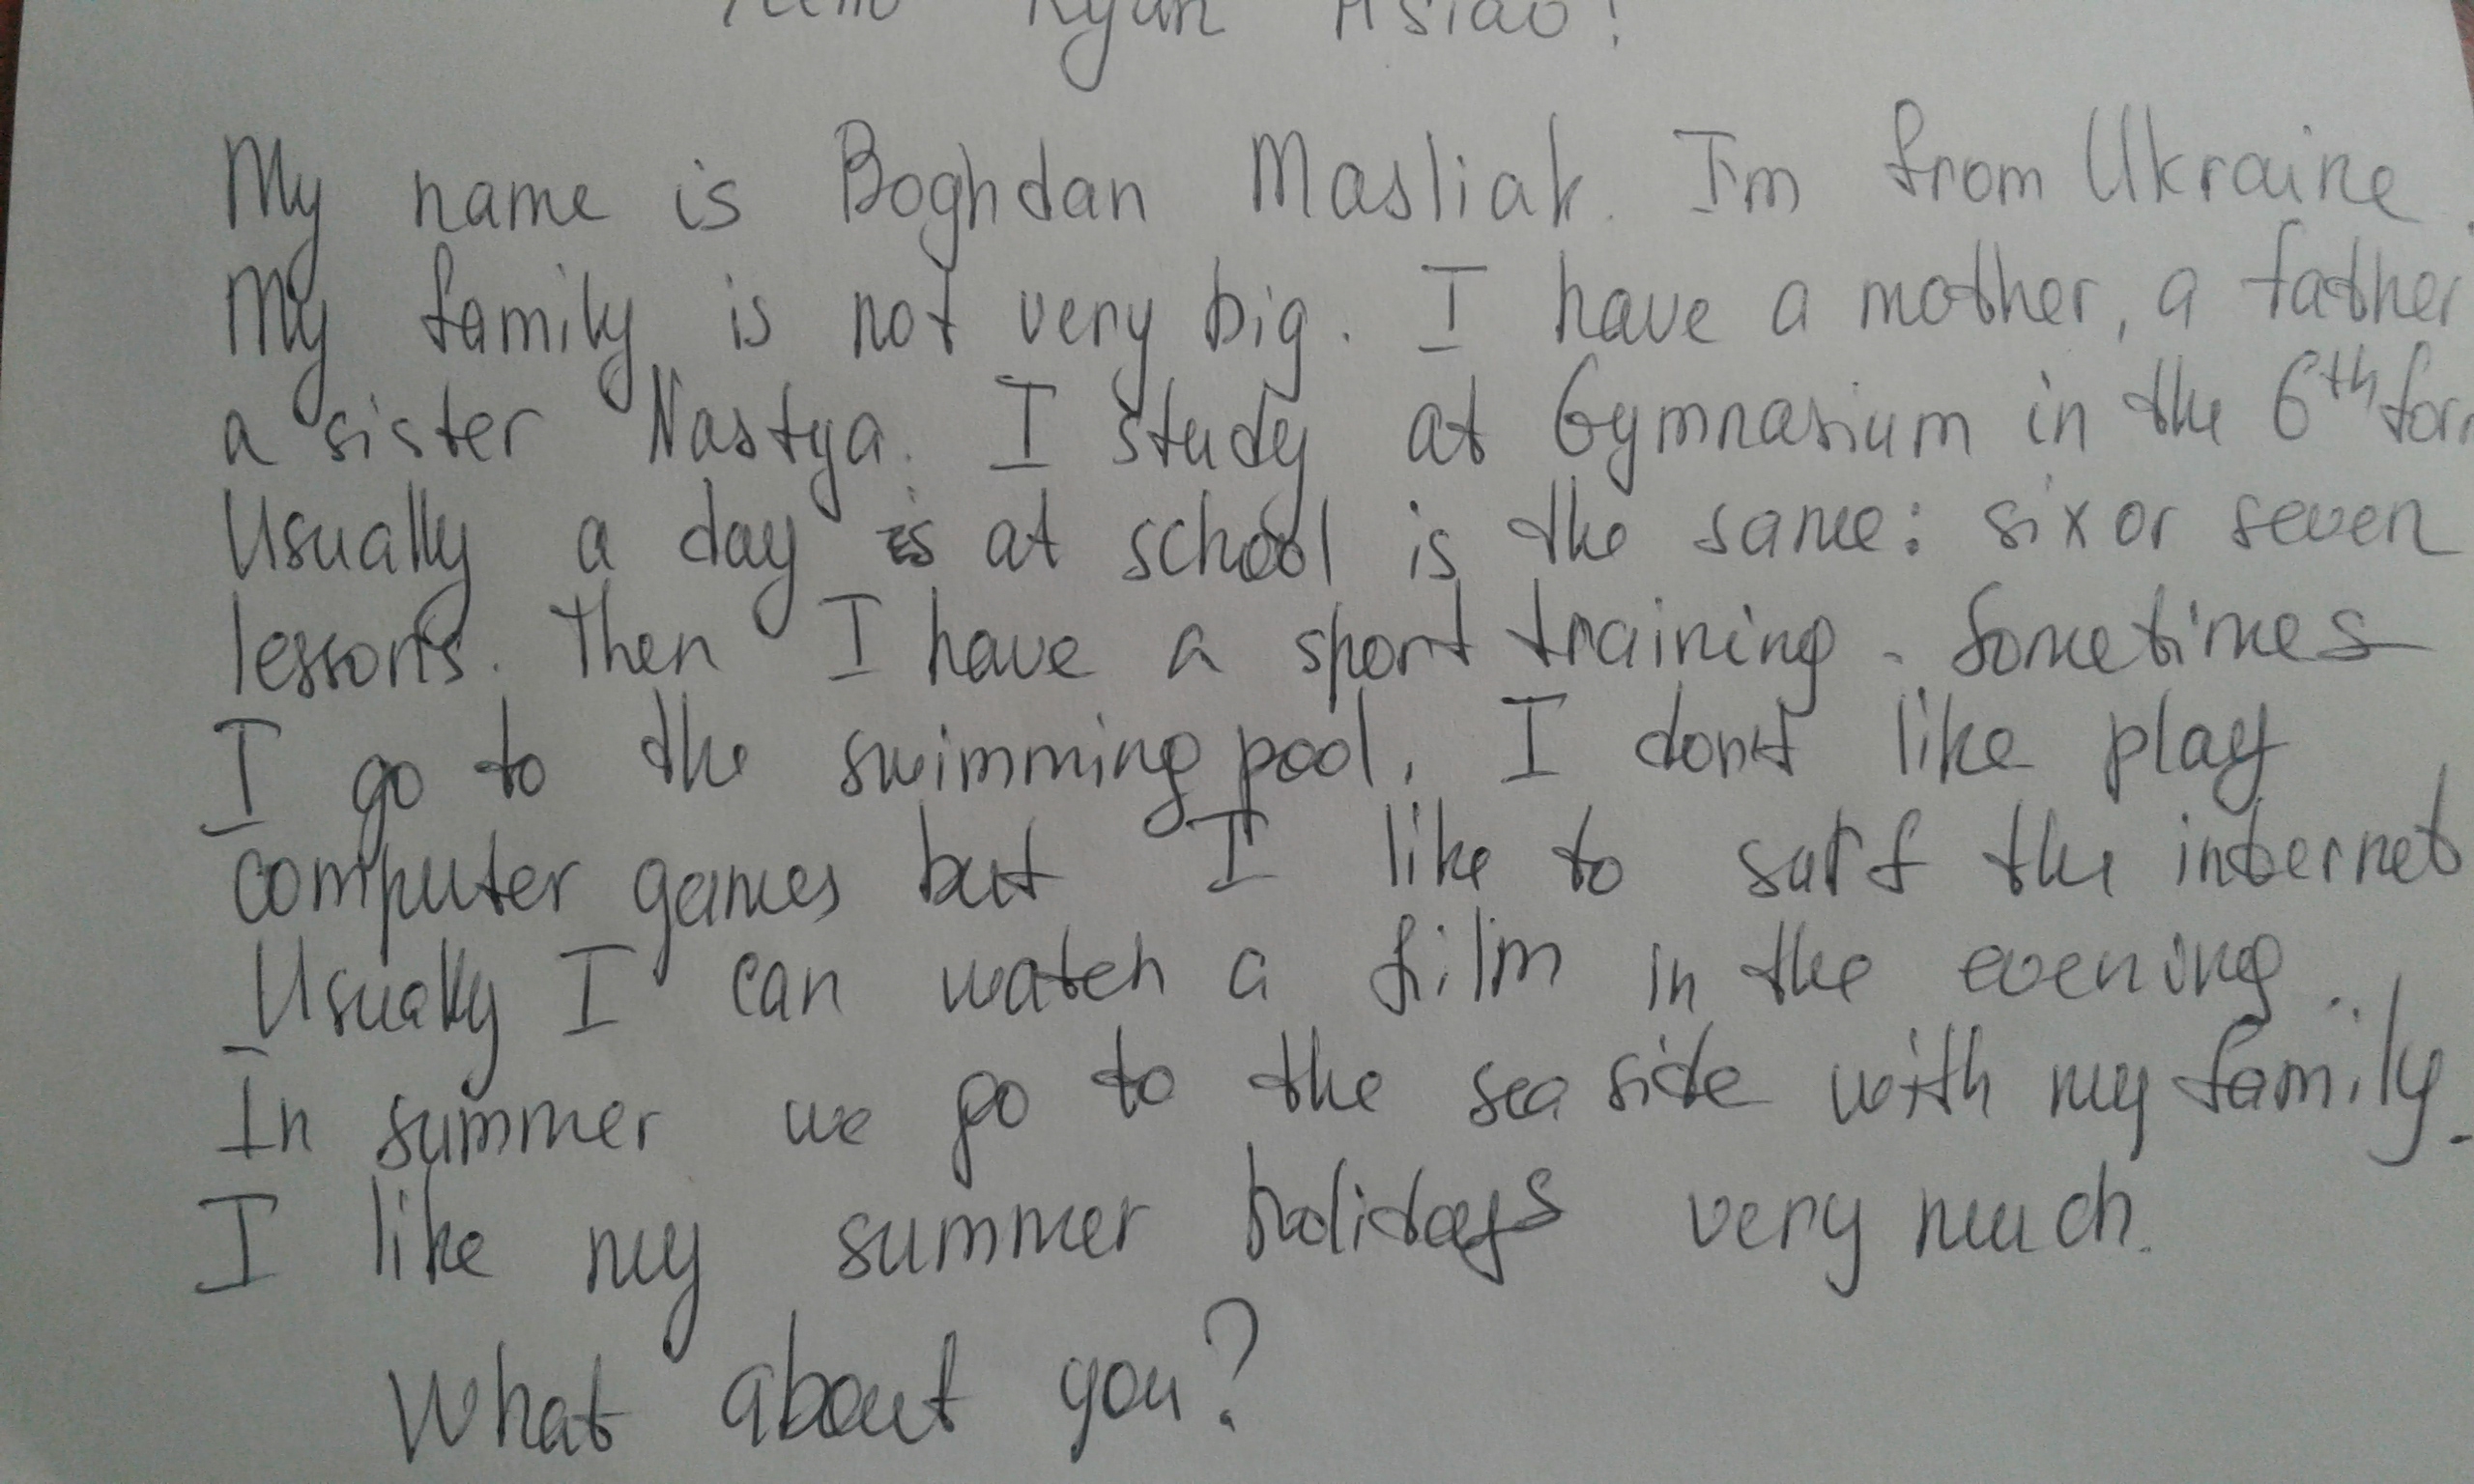 Hello Ryan Hsiao!
My name is Boghdan Masliak. I'm from Ukraine.
My family is not very big. I have a mother, a father
a sister Nastya. I study at Gymnasium in the 6th form
Usually a day is at school is the same: six or seven
lessons. Then I have a sport training. Sometimes
I go to the swimming pool. I don't like play
computer games but I like to surf the internet
Usually I can watch a film in the evening.
In summer we go to the sea side with my family.
I like my summer holidays very much.
What about you?